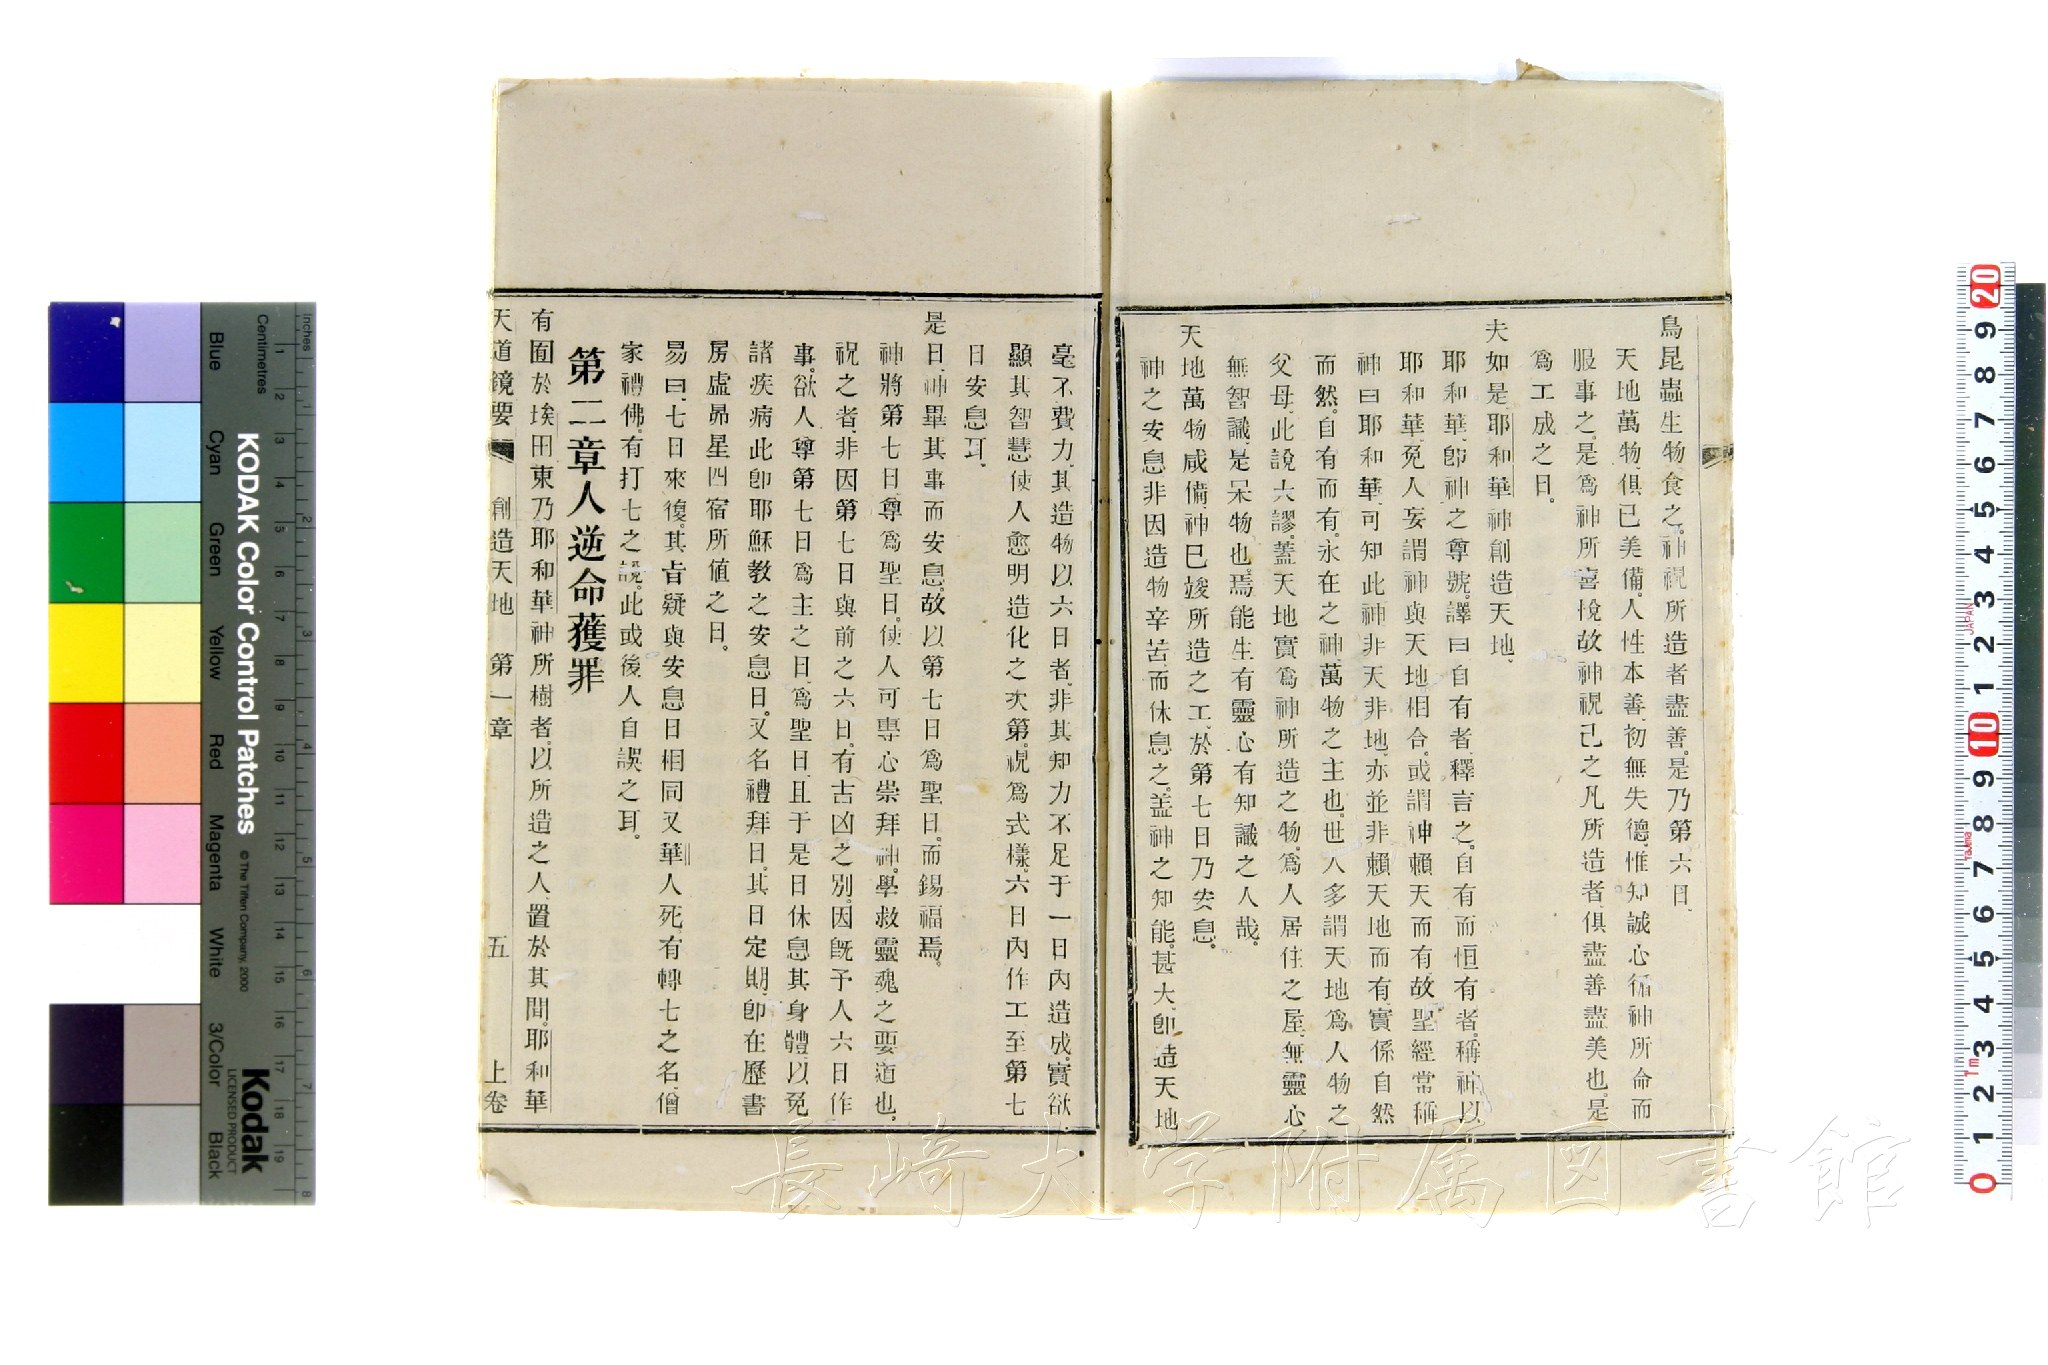 鳥昆蟲生物食之。神視所造者盡善。是乃第六日、
天地萬物、俱已美備。人性本善、初無失德、惟知誠心循神所命而
服事之。是爲神所喜悅、故神視己之凡所造者、俱盡善盡美也。是
爲工成之日。
夫如是耶和華神創造天地、
耶和華、卽神之尊號。譯曰自有者、釋言之。自有而恒有者。稱神以
耶和華、免人妄謂神與天地相合。或謂神賴天而有、故聖經常稱
神曰耶和華、可知此神非天非地、亦並非賴天地而有、實係自然
而然。自有而有。永在之神、萬物之主也。世人多謂天地爲人物之
父母、此說大謬。蓋天地實爲神所造之物。爲人居住之屋、無靈心
無智識、是呆物也。焉能生有靈心有知識之人哉。
天地萬物咸備、神已竣所造之工、於第七日乃安息。
神之安息、非因造物辛苦、而休息之。蓋神之知能。甚大、卽造天地
毫不費力、其造物以六日者、非其知力不足于一日內造成。實欲
顯其智慧、使人愈明造化之次第。視爲式樣。六日內作工、至第七
日安息耳、
是日、神畢其事而安息。故以第七日爲聖日。而錫福焉。
神將第七日尊爲聖日、使人可專心崇拜神。學救靈魂之要道也、
祝之者、非因第七日與前之六日。有吉凶之別。因旣予人六日作
事。欲人尊第七日爲主之日、爲聖日、且于是日休息其身體、以免
諸疾病、此卽耶穌教之安息日。又名禮拜日。其日定期、卽在歷書
房虛昴星四宿所值之日。
易曰、七日來復。其旨疑與安息日相同、又華人死、有轉七之名、僧
家禮佛。有打七之說。此或後人自誤之耳。
第二章人逆命獲罪
有囿於埃田東、乃耶和華神所樹者。以所造之人、置於其間。耶和華
天道鏡要 創造天地 第一章 五 上卷
KODAK Color Control Patches
© The Tiffen Company, 2000
Kodak
LICENSED PRODUCT
Inches
Centimetres
Blue Cyan Green Yellow Red Magenta White 3/Color Black
1 2 3 4 5 6 7 8 9 10 11 12 13 14 15 16 17 18 19
1 2 3 4 5 6 7 8
0 1 2 3 4 5 6 7 8 9 10 1 2 3 4 5 6 7 8 9 20
JAPAN
Tajima
長崎大学附属図書館